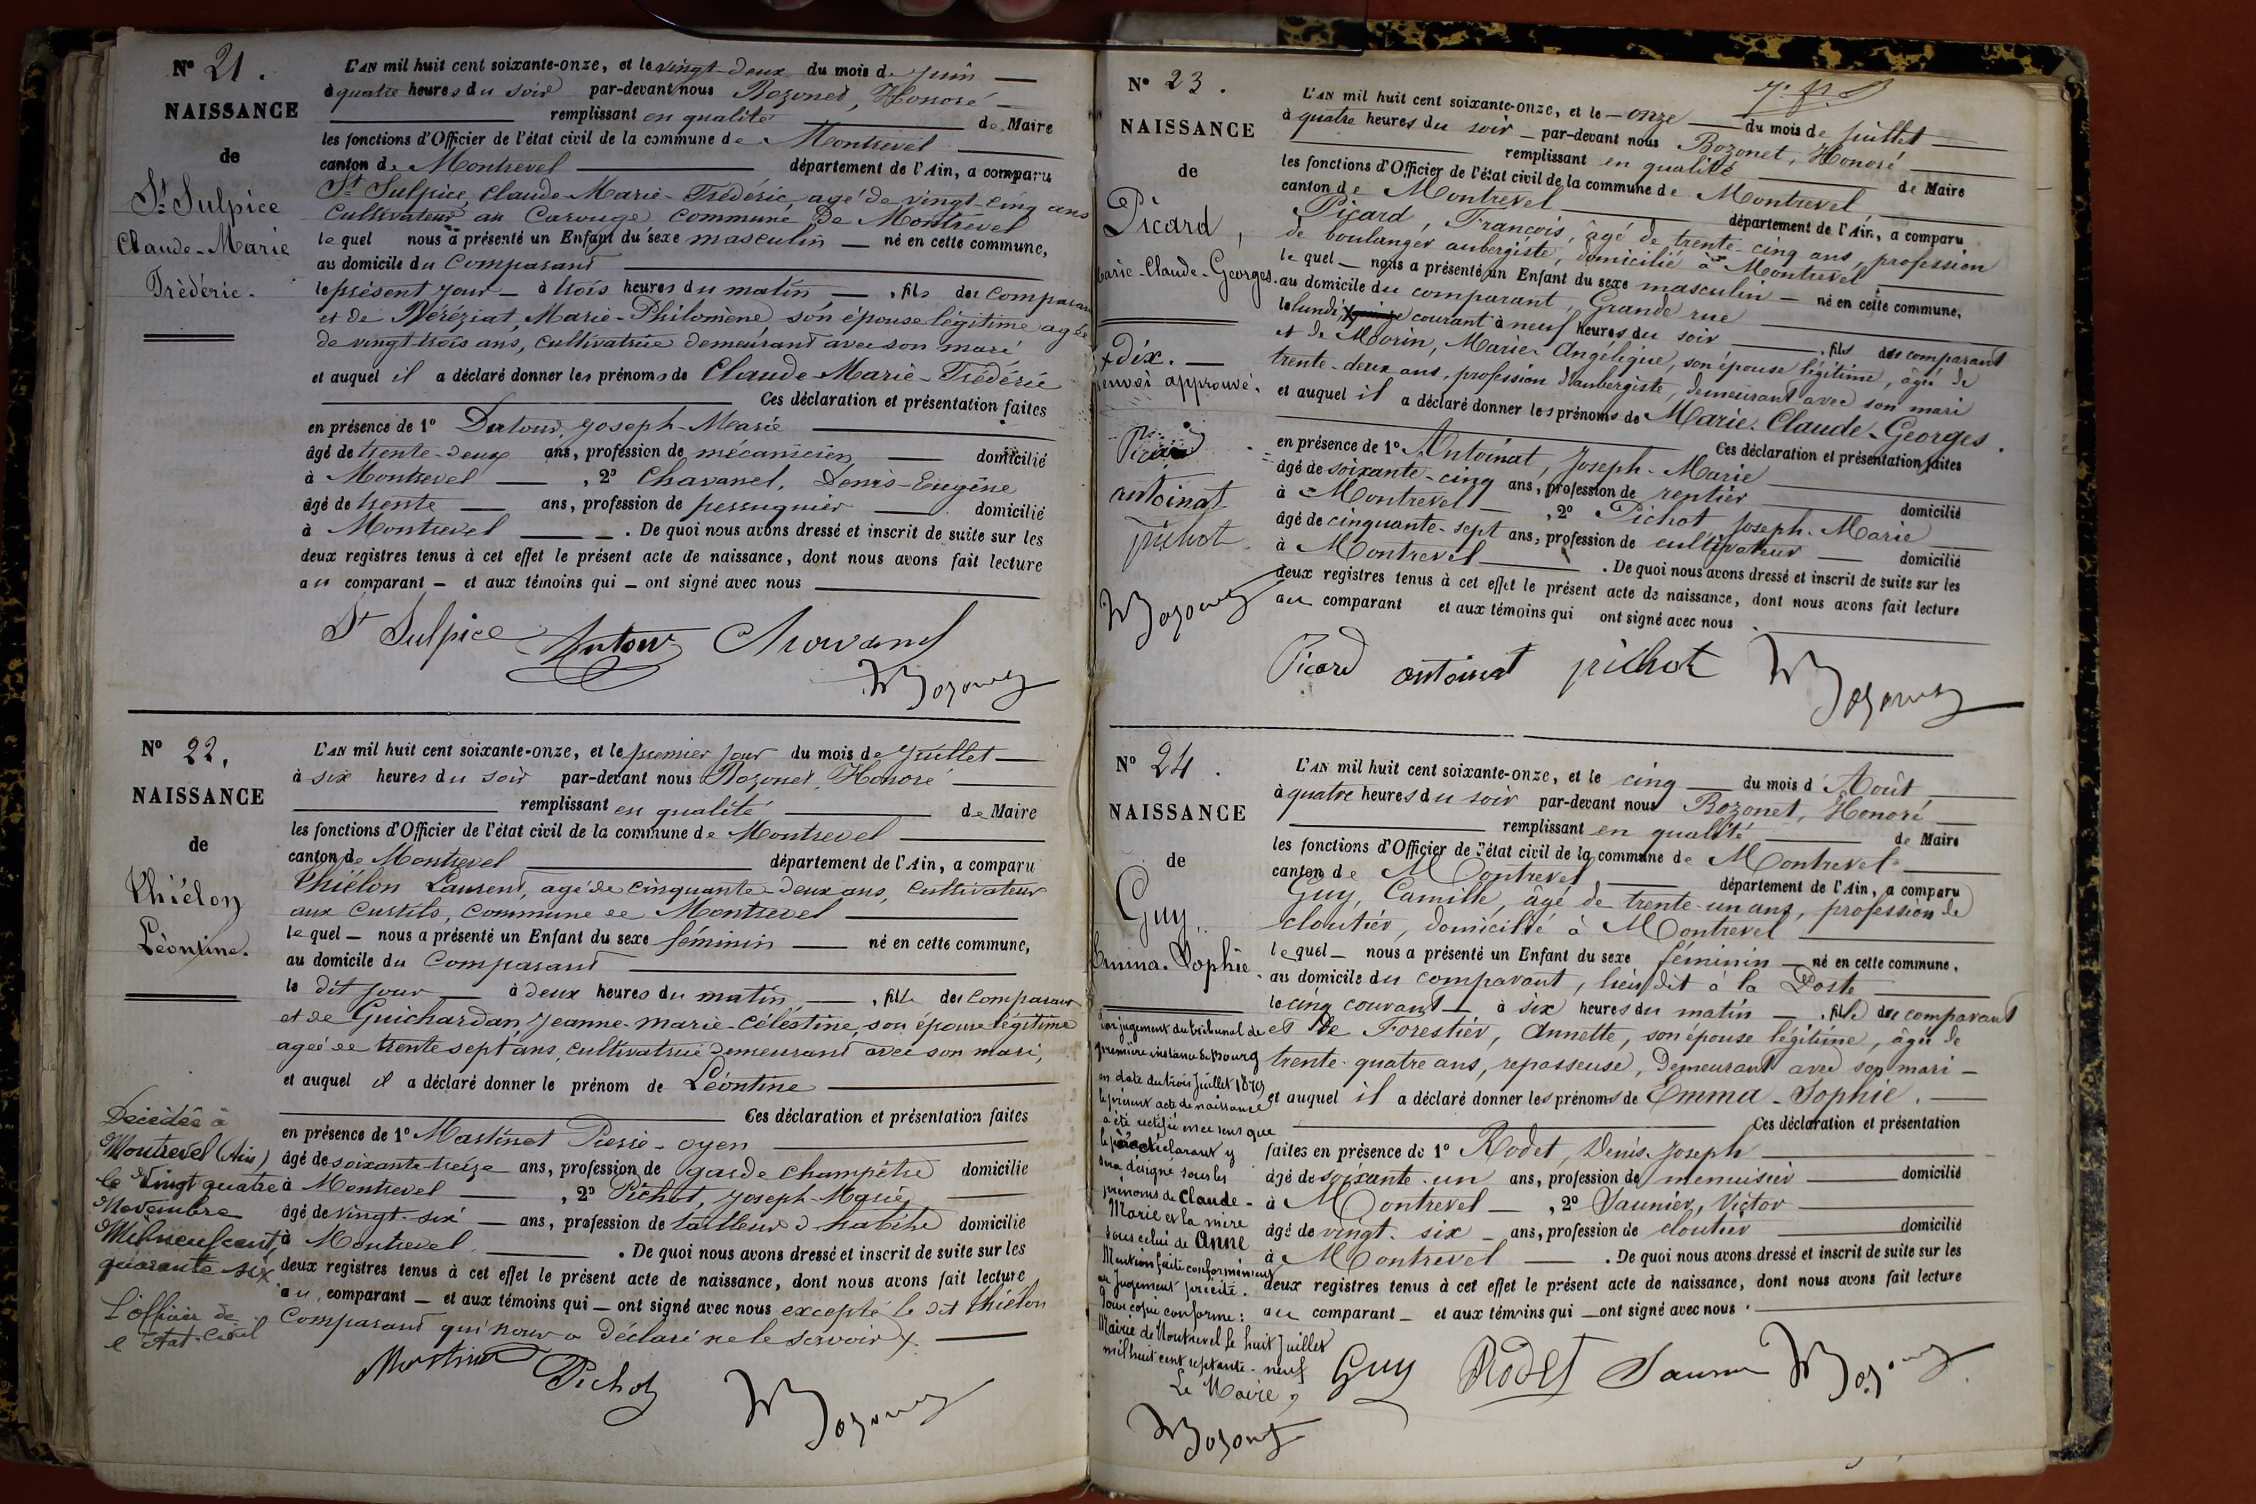 N° 21.
NAISSANCE
de
St Sulpice
Claude-Marie
Frédéric.
L'AN mil huit cent soixante-onze, et le vingt-deux du mois de juin
à quatre heures du soir par-devant nous Bozonet, Honoré
remplissant en qualité de Maire
les fonctions d'Officier de l'état civil de la commune de Montrevel
canton de Montrevel département de l'Ain, a comparu
St Sulpice, Claude-Marie-Frédéric, agé de vingt-cinq ans
Cultivateur au Carouge commune de Montrevel
lequel nous a présenté un Enfant du sexe masculin né en cette commune,
au domicile du Comparant
le présent jour à trois heures du matin, fils du comparant
et de Néréziat, Marie-Philomène son épouse légitime agée
de vingt trois ans, cultivatrice demeurant avec son mari
et auquel il a déclaré donner les prénoms de Claude-Marie-Frédéric
Ces déclaration et présentation faites
en présence de 1° Dutour, Joseph-Marie
âgé de trente-deux ans, profession de mécanicien domicilié
à Montrevel, 2° Chavanel, Denis-Eugène
âgé de trente ans, profession de perruquier domicilié
à Montrevel. De quoi nous avons dressé et inscrit de suite sur les
deux registres tenus à cet effet le présent acte de naissance, dont nous avons fait lecture
au comparant et aux témoins qui ont signé avec nous
St Sulpice Dutour Chavanel
Bozonet
N° 22.
NAISSANCE
de
Thiélon
Léontine.
L'AN mil huit cent soixante-onze, et le premier jour du mois de juillet
à six heures du soir par-devant nous Bozonet, Honoré
remplissant en qualité de Maire
les fonctions d'Officier de l'état civil de la commune de Montrevel
canton de Montrevel département de l'Ain, a comparu
Thiélon Laurent, agé de cinquante-deux ans, cultivateur
aux Curtils, commune de Montrevel
lequel nous a présenté un Enfant du sexe féminin né en cette commune,
au domicile du Comparant
le dit jour à deux heures du matin, fille du comparant
et de Guichardan, Jeanne-Marie-Célestine, son épouse légitime
agée de trente sept ans, cultivatrice demeurant avec son mari,
et auquel il a déclaré donner le prénom de Léontine
Ces déclaration et présentation faites
en présence de 1° Martinet Pierre-oyen
âgé de soixante-treize ans, profession de garde champêtre domicilié
à Montrevel, 2° Pichot, Joseph-Marie
âgé de vingt-six ans, profession de tailleur d'habits domicilié
à Montrevel. De quoi nous avons dressé et inscrit de suite sur les
deux registres tenus à cet effet le présent acte de naissance, dont nous avons fait lecture
au comparant et aux témoins qui ont signé avec nous excepté le dit Thiélon
Comparant qui nous a déclaré ne le savoir
Martinet Pichot Bozonet
Décédée à
Montrevel (Ain)
le Vingt quatre
Novembre
Mil neuf cent
quarante six
L'officier de
l'état-civil
N° 23.
NAISSANCE
de
Picard,
Marie-Claude-Georges.
L'AN mil huit cent soixante-onze, et le onze du mois de juillet
à quatre heures du soir par-devant nous Bozonet, Honoré
remplissant en qualité de Maire
les fonctions d'Officier de l'état civil de la commune de Montrevel
canton de Montrevel département de l'Ain, a comparu
Picard, François, âgé de trente-cinq ans, profession
de boulanger aubergiste, domicilié à Montrevel
lequel nous a présenté un Enfant du sexe masculin né en cette commune,
au domicile du comparant, Grande rue
le lundi, courant à neuf heures du soir, fils du comparant
et de Morin, Marie-Angélique, son épouse légitime, âgée de
trente-deux ans, profession d'aubergiste, demeurant avec son mari
et auquel il a déclaré donner les prénoms de Marie-Claude-Georges.
Ces déclaration et présentation faites
en présence de 1° Antoinat, Joseph-Marie
âgé de soixante-cinq ans, profession de rentier domicilié
à Montrevel, 2° Pichot Joseph-Marie
âgé de cinquante-sept ans, profession de cultivateur domicilié
à Montrevel. De quoi nous avons dressé et inscrit de suite sur les
deux registres tenus à cet effet le présent acte de naissance, dont nous avons fait lecture
au comparant et aux témoins qui ont signé avec nous
Picard antoinat pichot Bozonet
+ dix.
renvoi approuvé.
Picard
antoinat
pichot
Bozonet
N° 24.
NAISSANCE
de
Guy,
Emma-Sophie.
L'AN mil huit cent soixante-onze, et le cinq du mois d'Août
à quatre heures du soir par-devant nous Bozonet, Honoré
remplissant en qualité de Maire
les fonctions d'Officier de l'état civil de la commune de Montrevel
canton de Montrevel département de l'Ain, a comparu
Guy, Camille, âgé de trente-un ans, profession de
cloutier, domicilié à Montrevel
lequel nous a présenté un Enfant du sexe féminin né en cette commune,
au domicile du comparant, lieu dit à la Poste
le cinq courant à six heures du matin, fille du comparant
et de Forestier, Annette, son épouse légitime, âgée de
trente-quatre ans, repasseuse, demeurant avec son mari
et auquel il a déclaré donner les prénoms de Emma-Sophie.
Ces déclaration et présentation
faites en présence de 1° Rodet, Denis-Joseph
âgé de soixante-un ans, profession de menuisier domicilié
à Montrevel, 2° Saunier, Victor
âgé de vingt-six ans, profession de cloutier domicilié
à Montrevel. De quoi nous avons dressé et inscrit de suite sur les
deux registres tenus à cet effet le présent acte de naissance, dont nous avons fait lecture
au comparant et aux témoins qui ont signé avec nous.
Guy Rodet Saunier Bozonet
Par jugement du tribunal de
première instance de Bourg
en date du trois Juillet 1879
le présent acte de naissance
a été rectifié en ce sens que
le père déclarant y
sera désigné sous les
prénoms de Claude-
Marie et la mère
sous celui de Anne
Mention faite conformément
au Jugement précité.
Pour copie conforme:
Mairie de Montrevel le huit Juillet
mil huit cent septante-neuf
Le Maire,
Bozonet